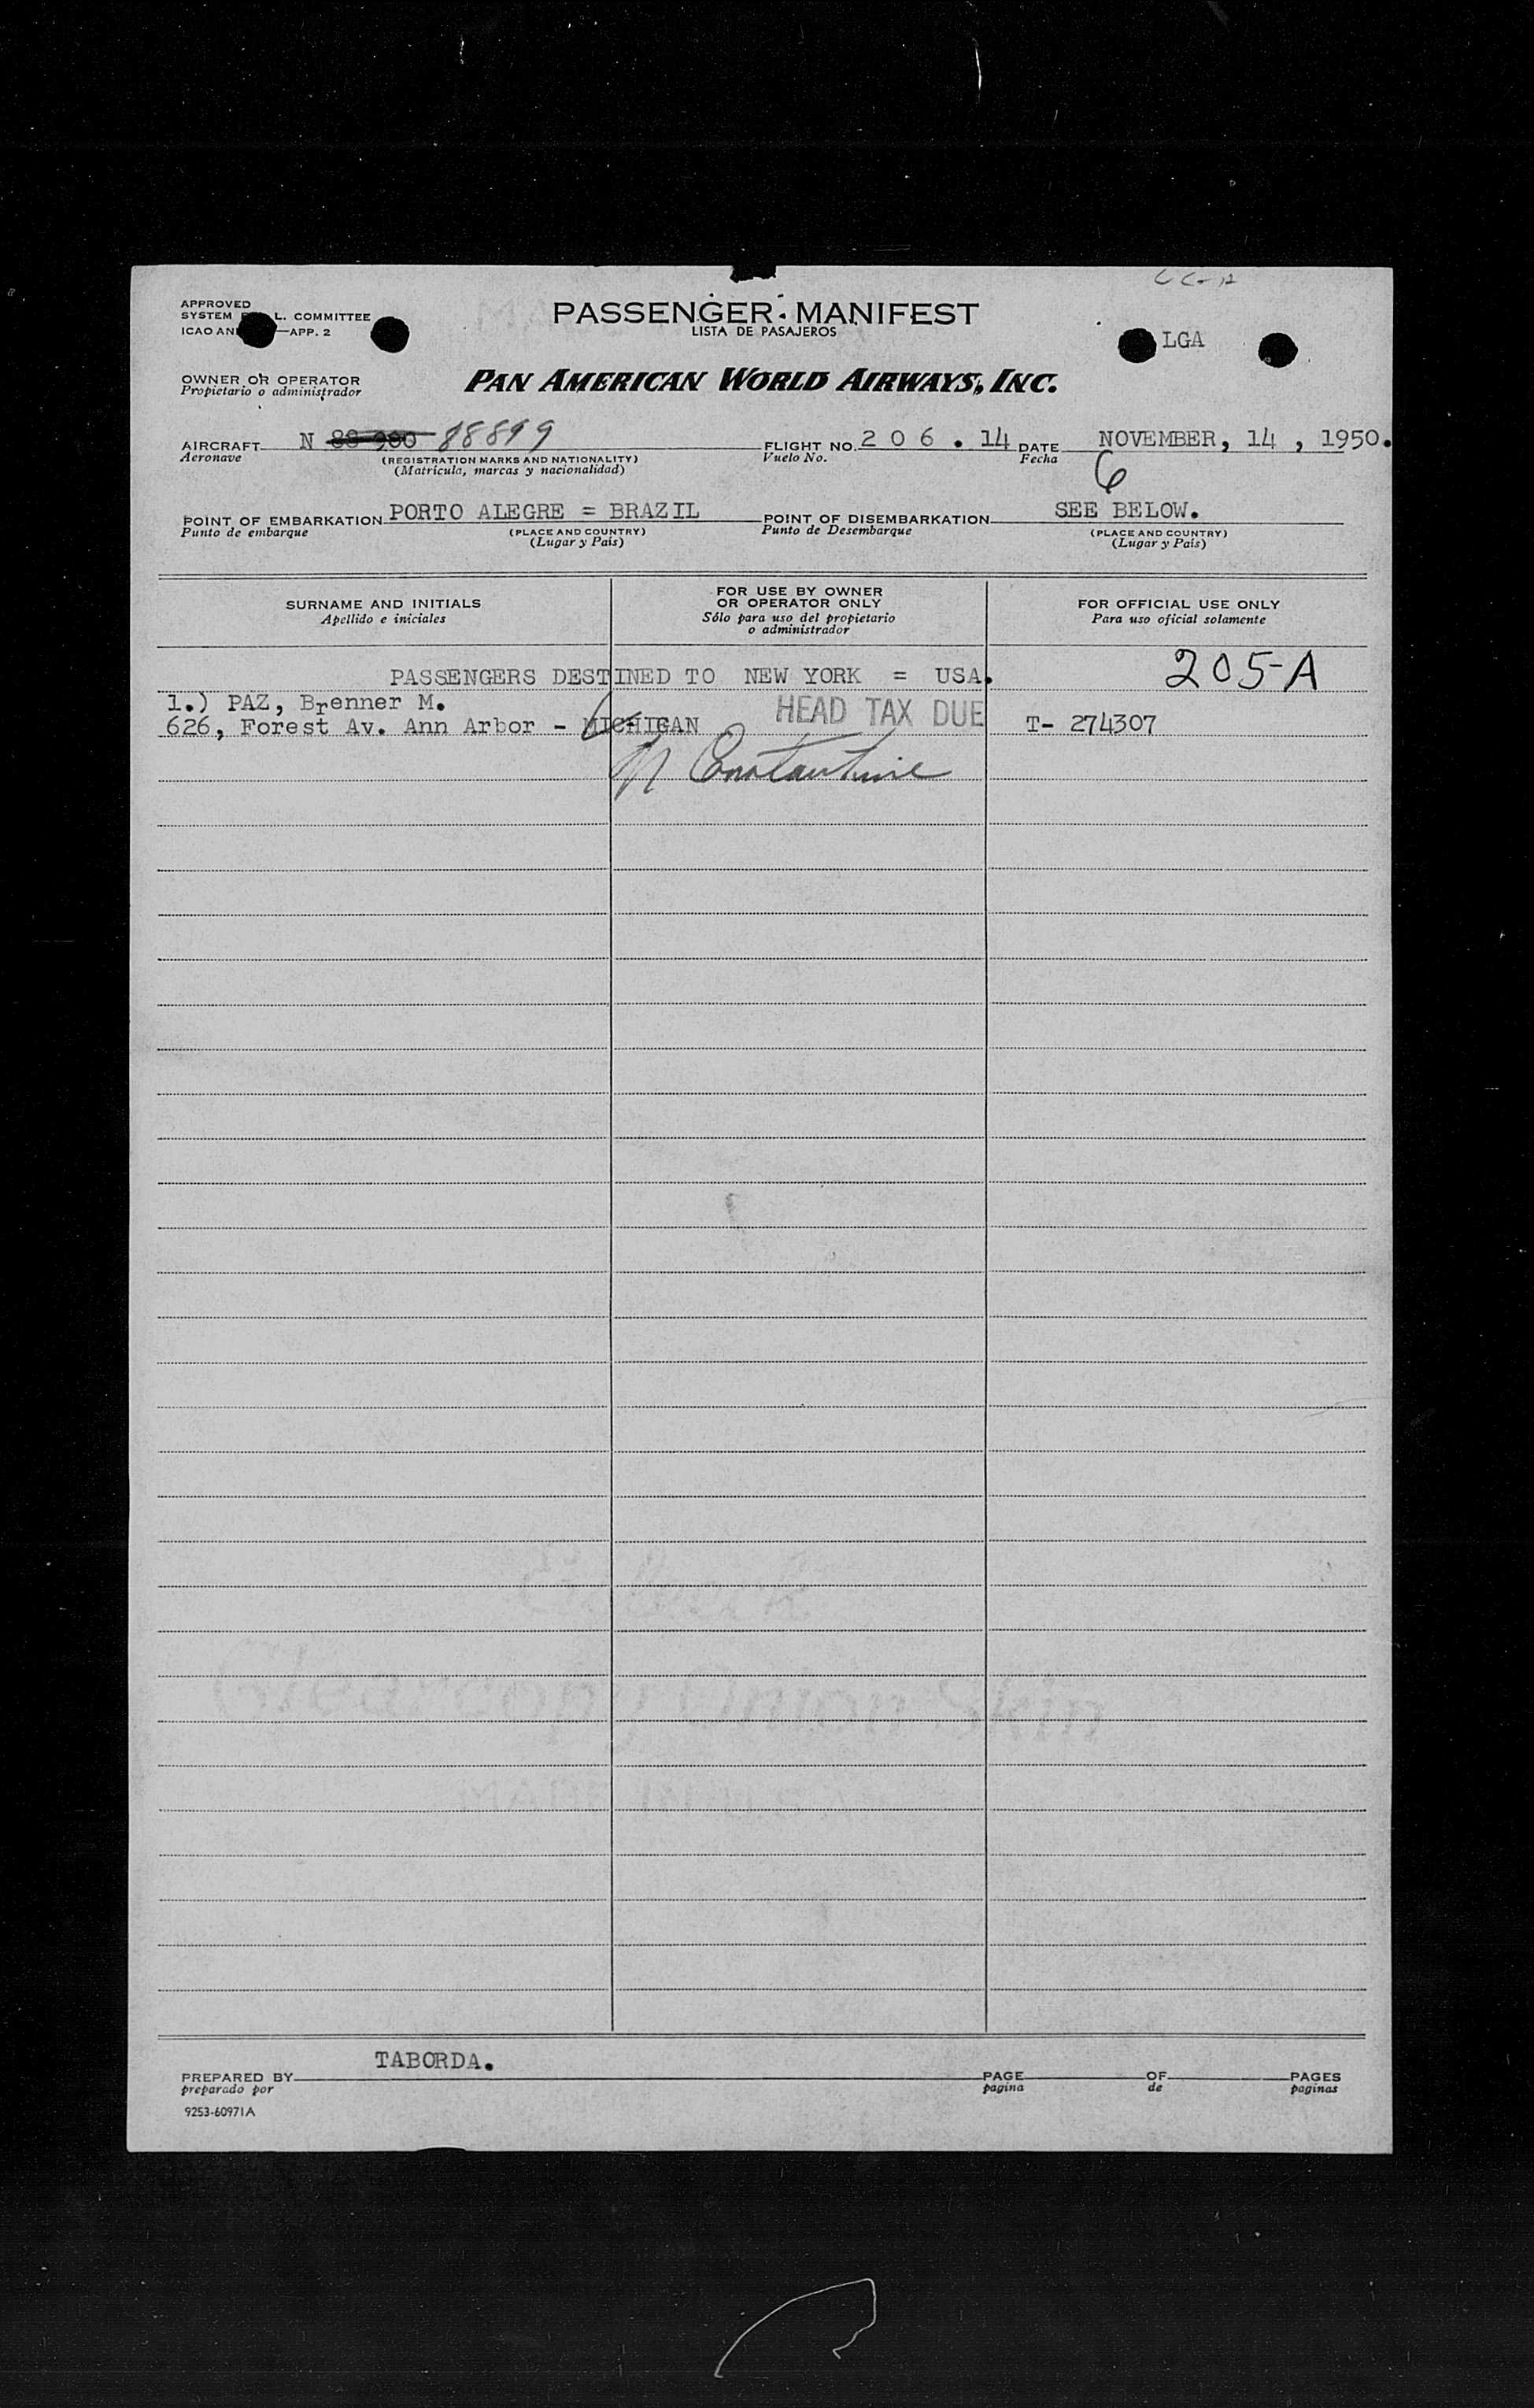 APPROVED
SYSTEM L. COMMITTEE
ICAO AN —APP. 2
PASSENGER MANIFEST
LISTA DE PASAJEROS
LGA
OWNER OR OPERATOR
Propietario o administrador
PAN AMERICAN WORLD AIRWAYS, INC.
AIRCRAFT N 88 980 88899
Aeronave
(REGISTRATION MARKS AND NATIONALITY)
(Matrícula, marcas y nacionalidad)
FLIGHT NO. 2 0 6 . 14
Vuelo No.
DATE NOVEMBER, 14 , 1950.
Fecha
6
POINT OF EMBARKATION PORTO ALEGRE = BRAZIL
Punto de embarque
(PLACE AND COUNTRY)
(Lugar y País)
POINT OF DISEMBARKATION SEE BELOW.
Punto de Desembarque
(PLACE AND COUNTRY)
(Lugar y País)
SURNAME AND INITIALS
Apellido e iniciales
FOR USE BY OWNER
OR OPERATOR ONLY
Sólo para uso del propietario
o administrador
FOR OFFICIAL USE ONLY
Para uso oficial solamente
PASSENGERS DESTINED TO NEW YORK = USA.
205-A
1.) PAZ, Brenner M.
626, Forest Av. Ann Arbor - MICHIGAN
HEAD TAX DUE
T- 274307
Constantine
TABORDA.
PREPARED BY
preparado por
PAGE OF PAGES
pagina de paginas
9253-60971A